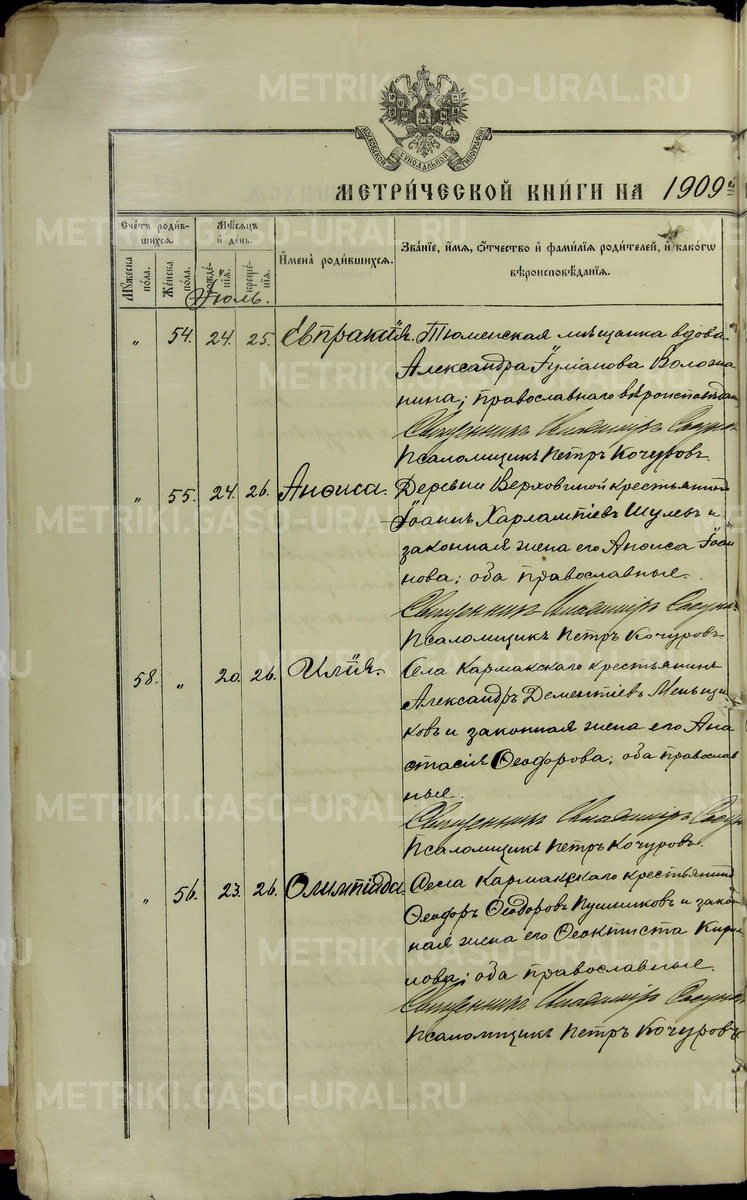 METRIKI.GASO-URAL.RU
МОСКОВСКОЙ СѴНОДАЛЬНОЙ ТИПОГРАФІИ
МЕТРИ́ЧЕСКОЙ КНИ́ГИ НА 1909
Сче́тъ роди́в-
шихсѧ.
Мꙋ́жеска по́ла.
Же́нска по́ла.
Мѣ́сѧцъ
и҆ де́нь.
рожде́-
нїѧ.
креще́-
нїѧ.
И҆мена̀ роди́вшихсѧ.
Зва́нїе, и҆́мѧ, ѻ҆́тчество и҆ фами́лїѧ роди́телей, и҆ како́гѡ
вѣроисповѣ́данїѧ.
Іюль.
„ 54. 24. 25. Евпраксія. Тюменская мѣщанка вдова
Александра Іуліанова Вологжа
нина; православнаго вѣроисповѣдан
Священникъ Владиміръ
Псаломщикъ Петръ Кочуровъ.
„ 55. 24. 26. Анѳиса. Деревни крестьянинъ
Іоаннъ Харлампіевъ Шулевъ и
законная жена его Анѳиса Іоан
нова; оба православные.
Священникъ Владиміръ
Псаломщикъ Петръ Кочуровъ
58. „ 20. 26. Илія. Села Кармакскаго крестьянинъ
Александръ Дементіевъ Меньщи
ковъ и законная жена его Ана
стасія Ѳеодорова; оба православ
ные.
Священникъ Владиміръ
Псаломщикъ Петръ Кочуровъ.
„ 56. 23. 26. Олимпіада. Села Кармакскаго крестьянинъ
Ѳеодоръ Ѳеодоровъ Пушниковъ и закон
ная жена его Ѳеоктиста Кирил
лова; оба православные.
Священникъ Владиміръ
Псаломщикъ Петръ Кочуровъ